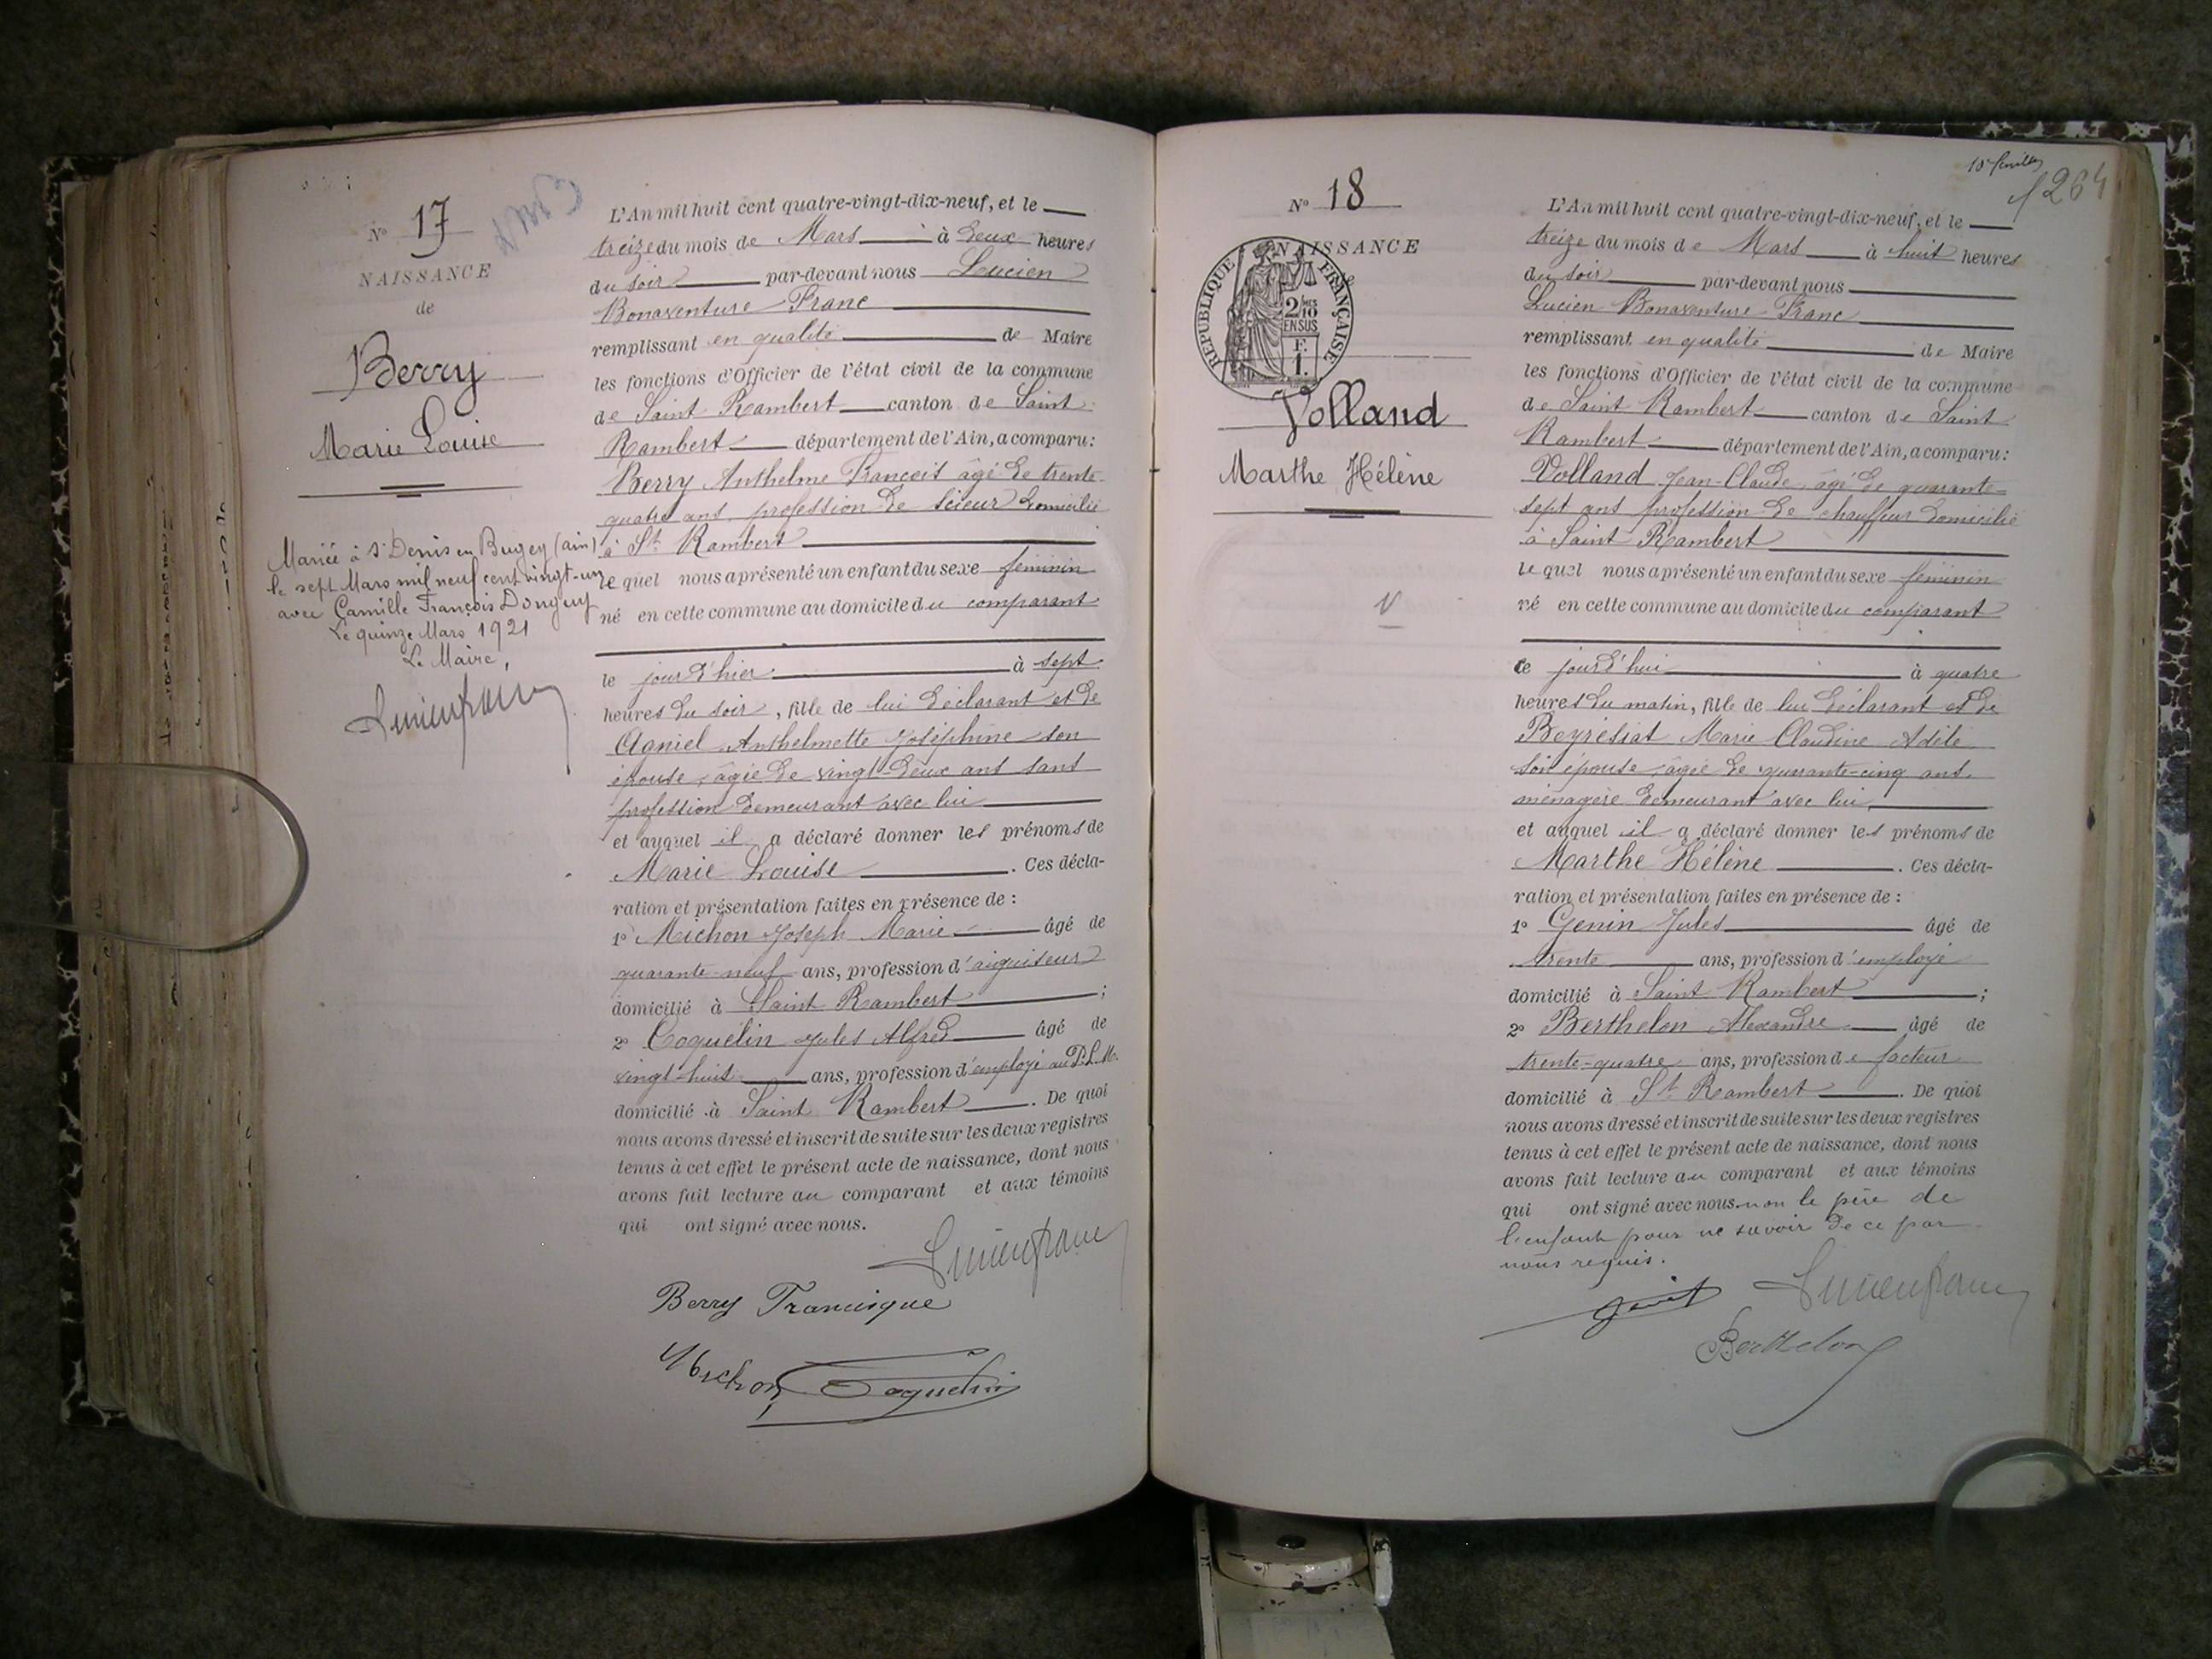 N° 17
NAISSANCE
de
Berry
Marie Louise
Mariée à St Denis en Bugey (ain)
le sept Mars mil neuf cent vingt-un
avec Camille François
Le quinze Mars 1921
Le Maire,
L'An mil huit cent quatre-vingt-dix-neuf, et le
treize du mois de Mars à deux heures
du soir par-devant nous Lucien
Bonaventure Franc
remplissant en qualité de Maire
les fonctions d'Officier de l'état civil de la commune
de Saint Rambert canton de Saint
Rambert département de l'Ain, a comparu:
Berry Anthelme François âgé de trente
quatre ans, profession de scieur domicilié
à St Rambert
le quel nous a présenté un enfant du sexe féminin
né en cette commune au domicile du comparant
le jour d'hier à sept
heures du soir, fille de lui déclarant et de
Agniel Anthelmette Joséphine son
épouse, âgée de vingt-deux ans sans
profession demeurant avec lui
et auquel il a déclaré donner les prénoms de
Marie Louise . Ces décla-
ration et présentation faites en présence de :
1° Michon Joseph Marie âgé de
quarante-neuf ans, profession d'aiguiseur
domicilié à Saint Rambert ;
2° Coquelin Jules Alfred âgé de
vingt-huit ans, profession d'employé au P.L.M.
domicilié à Saint Rambert . De quoi
nous avons dressé et inscrit de suite sur les deux registres
tenus à cet effet le présent acte de naissance, dont nous
avons fait lecture au comparant et aux témoins
qui ont signé avec nous.
Lucien Franc
Berry Francisque
Michon Coquelin
10e feuillet
264
N° 18
NAISSANCE
de
RÉPUBLIQUE FRANÇAISE
2/10 MES
EN SUS
F.
1.
Volland
Marthe Hélène
L'An mil huit cent quatre-vingt-dix-neuf, et le
treize du mois de Mars à huit heures
du soir par-devant nous
Lucien Bonaventure Franc
remplissant en qualité de Maire
les fonctions d'Officier de l'état civil de la commune
de Saint Rambert canton de Saint
Rambert département de l'Ain, a comparu:
Volland Jean-Claude, âgé de quarante-
sept ans profession de chauffeur domicilié
à Saint Rambert
le quel nous a présenté un enfant du sexe féminin
né en cette commune au domicile du comparant
ce jour d'hui à quatre
heures du matin, fille de lui déclarant et de
Beyrésiat Marie Claudine Adèle
son épouse, âgée de quarante-cinq ans,
ménagère demeurant avec lui
et auquel il a déclaré donner les prénoms de
Marthe Hélène . Ces décla-
ration et présentation faites en présence de :
1° Genin Jules âgé de
trente ans, profession d'employé
domicilié à Saint Rambert ;
2° Berthelon Alexandre âgé de
trente-quatre ans, profession de facteur
domicilié à St Rambert . De quoi
nous avons dressé et inscrit de suite sur les deux registres
tenus à cet effet le présent acte de naissance, dont nous
avons fait lecture au comparant et aux témoins
qui ont signé avec nous non le père de
l'enfant pour ne savoir de ce par
nous requis.
Lucien Franc
Berthelon